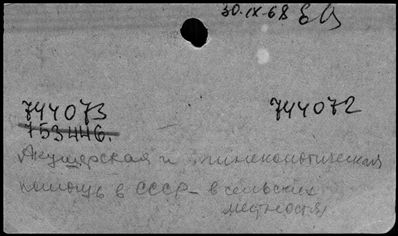 30.IX-68
744073 744072
753446.
Акушерская и гинекологическая
помощь в СССР - в сельских
местностях